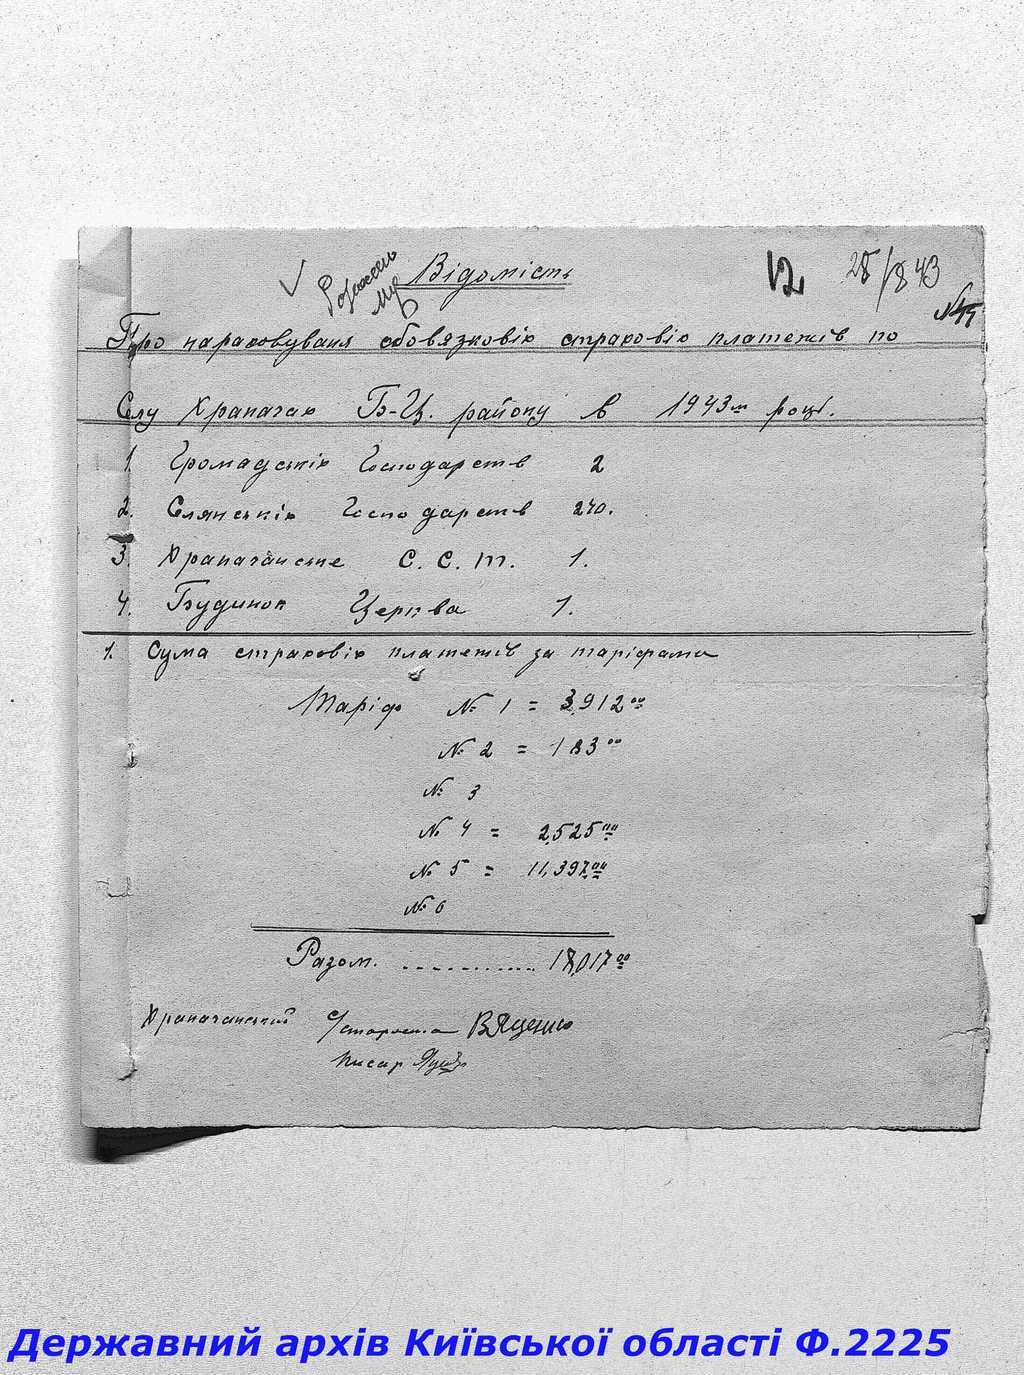 Відомість
12
28/8 43
Про нараховуваня обовязковіх страховіх платежів по
Слу Храпачах Б-Ц. району в 1943м році.
1. Громадськіх Господарств 2
2. Слянськіх Господарств 240.
3. Храпачанське С. С. т. 1.
4. Будинок Церква 1.
1. Сума страховіх платежів за таріфами
Таріф № 1 = 3,912 00
№ 2 = 183 00
№ 3
№ 4 = 2,525 00
№ 5 = 11,397 00
№ 6
Разом. ............. 18,017 00
Храпачанський С/староста В Яценко
Писар
Державний архів Київської області Ф.2225